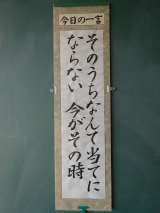 今日の一言
そのうちなんて当てに
ならない 今がその時